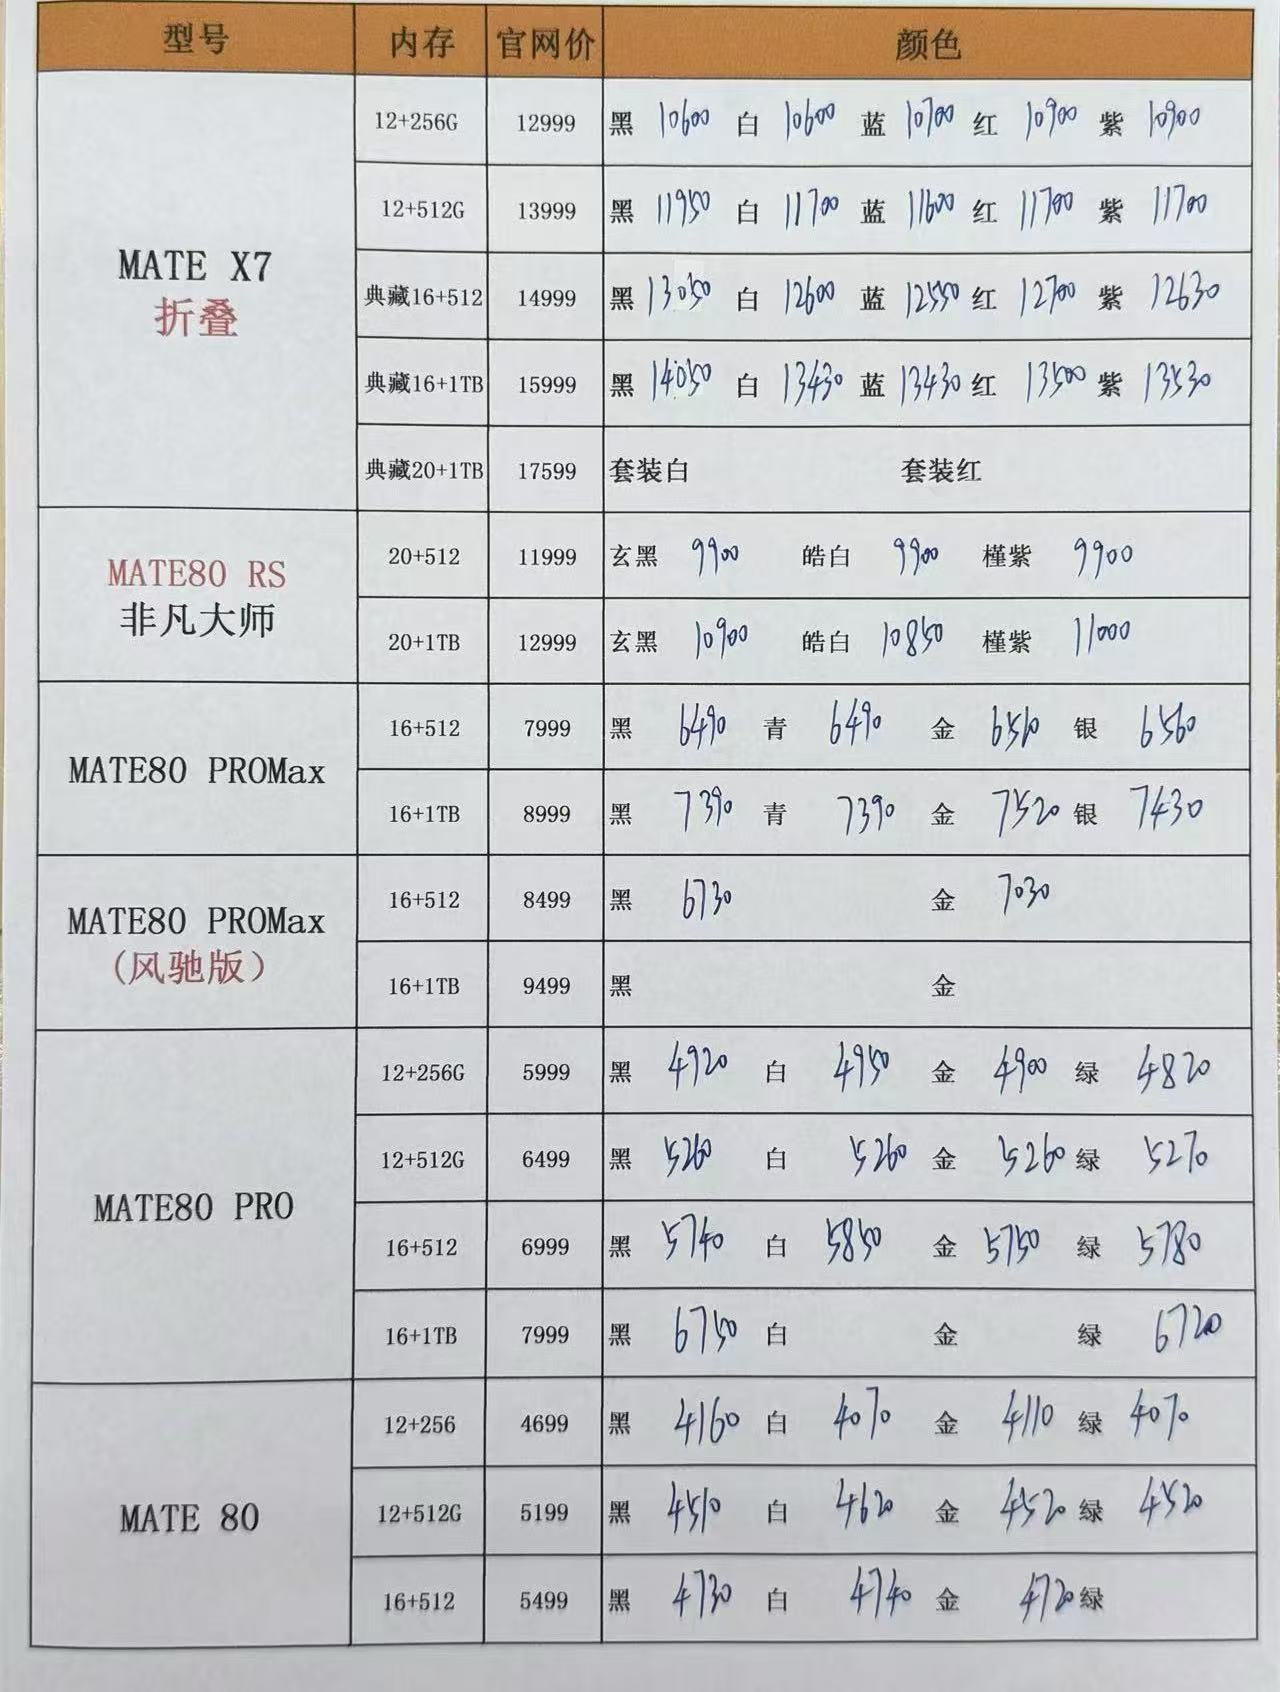 型号 内存 官网价 颜色
12+256G 12999 黑 10600 白 10600 蓝 10700 红 10900 紫 10900
12+512G 13999 黑 11950 白 11700 蓝 11600 红 11700 紫 11700
MATE X7
折叠
典藏16+512 14999 黑 13050 白 12600 蓝 12550 红 12700 紫 12630
典藏16+1TB 15999 黑 14050 白 13430 蓝 13430 红 13500 紫 13530
典藏20+1TB 17599 套装白 套装红
MATE80 RS
非凡大师
20+512 11999 玄黑 9900 皓白 9900 槿紫 9900
20+1TB 12999 玄黑 10900 皓白 10850 槿紫 11000
MATE80 PROMax
16+512 7999 黑 6490 青 6490 金 6510 银 6560
16+1TB 8999 黑 7390 青 7390 金 7520 银 7430
MATE80 PROMax
(风驰版)
16+512 8499 黑 6730 金 7030
16+1TB 9499 黑 金
MATE80 PRO
12+256G 5999 黑 4920 白 4950 金 4900 绿 4820
12+512G 6499 黑 5260 白 5260 金 5260 绿 5270
16+512 6999 黑 5740 白 5850 金 5750 绿 5780
16+1TB 7999 黑 6750 白 金 绿 6720
MATE 80
12+256 4699 黑 4160 白 4070 金 4110 绿 4070
12+512G 5199 黑 4510 白 4620 金 4520 绿 4520
16+512 5499 黑 4730 白 4740 金 4720 绿